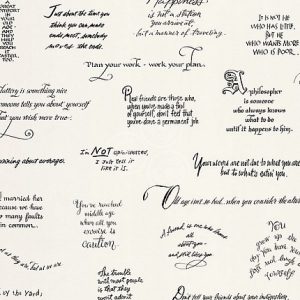 Just about the time you
think you can make
ends meet, somebody
moves the ends.
Happiness
is not a station
you arrive at,
but a manner of traveling.
IS NOT HE
WHO HAS LITTLE,
BUT HE
WHO WANTS MORE
WHO IS POOR...
Plan your work - work your plan.
Flattery is something nice
someone tells you about yourself
that you wish were true.
Real friends are those who,
when you've made a fool
of yourself, don't feel that
you've done a permanent job
A philosopher
is someone
who always knows
what to do
until it happens to him.
In NOT
I only tell it
like it is.
Your ulcers are not due to what you are
but to what's eatin' you.
Old age isn't so bad, when you consider the
I married her
because we have
so many faults
in common.
You've reached
middle age
when all you
exercise is
caution.
A friend is one who knows
all about you
and still likes you
You
grow up
the day
you have your
first real laugh
at yourself
The trouble
with most people
is that they
won't admit
by the Yard.